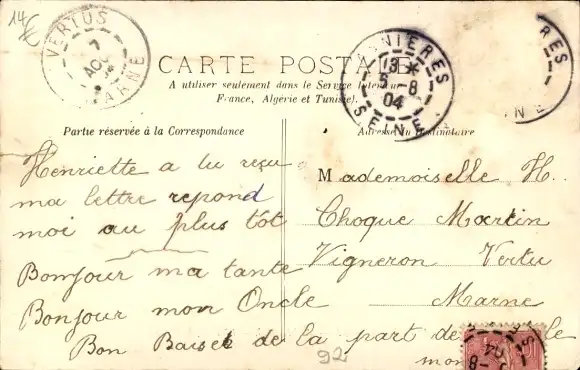 14€
VERTUS
7
AOU
MARNE
ASNIERES
13*
5-8
04
SEINE
RES
NE
CARTE POSTALE
A utiliser seulement dans le Service Intérieur
France, Algérie et Tunisie).
Partie réservée à la Correspondance
Adresse du Destinataire
Henriette a tu reçu
ma lettre repond
moi au plus tôt
Bonjour ma tante
Bonjour mon Oncle
Bon Baiser de la part de
mon
92
Mademoiselle H.
Choque Martin
Vigneron Vertu
Marne